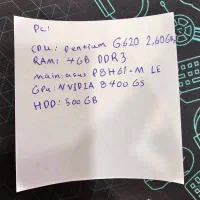 PC:
CPU: Pentium G620 2,60GHz
RAM: 4GB DDR3
main: asus P8H61-M LE
GPU: NVIDIA 8400 GS
HDD: 500 GB